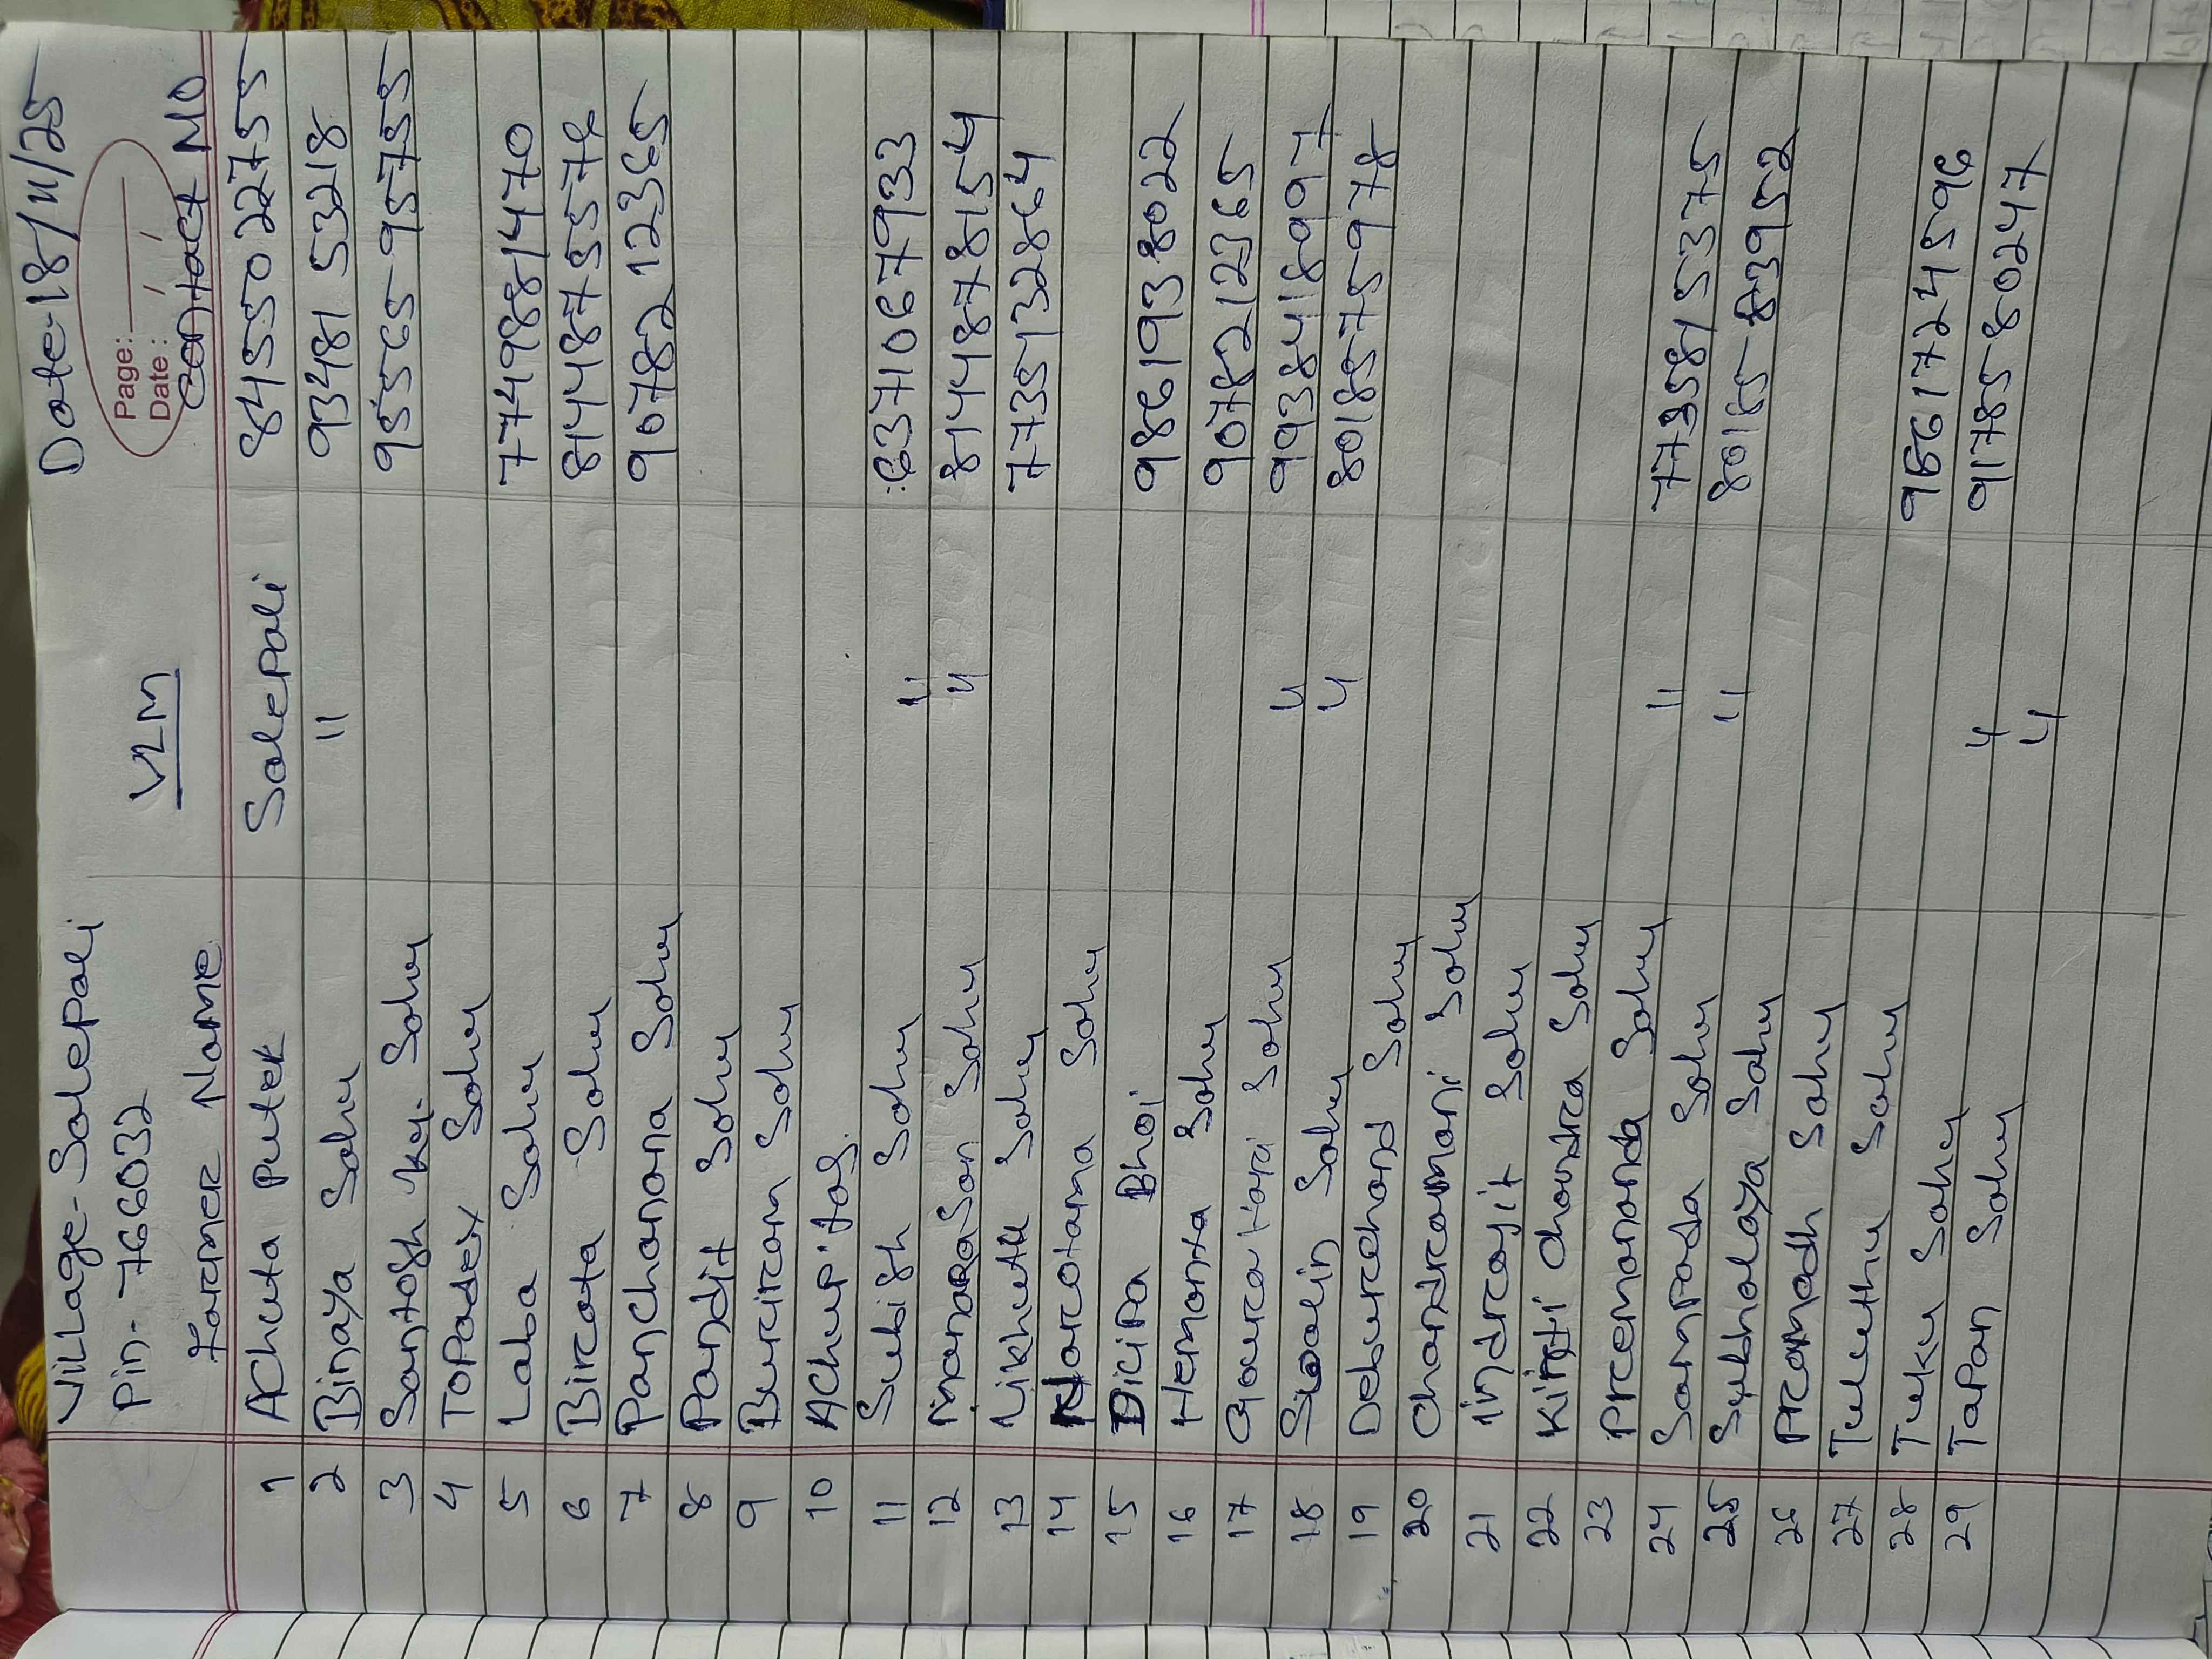 Village - Salepali Date-18/11/25
Pin - 766032 VLM Page:
Date: / /
Farmer Name contact No
1 Achuta Putek Salepali 8455022755
2 Binaya Sahu 11 9348153218
3 Santosh ky. Sahu 9556595755
4 Topader Sahu
5 Laba Sahu 7749881470
6 Bircata Sahu 8144875578
7 Panchanana Sahu 9078212365
8 Pandit Sahu
9 Burcircam Sahu
10 Achupitas
11 Subish Sahu 11 6371067933
12 Sahu 11 8144878154
13 Likhutu Sahu 7735132864
14 Narcotama Sahu
15 Dicipa Bhoi 9861938022
16 Hemanta Sahu 9078212365
17 Gourcahari Sahu 11 9938418997
18 Sahu 11 8018575978
19 Deburchand Sahu
20 Chandrcamani Sahu
21 indrcajit Sahu
22 Kirti Chandrca Sahu
23 Prcemananda Sahu
24 Sampada Sahu 11 7735815375
25 Subhalaya Sahu 11 80185-83952
26 Prcamadh Sahu
27 Tuluthu Sahu
28 Tuku Sahu 11 724596
29 Tapan Sahu 11 9178580247